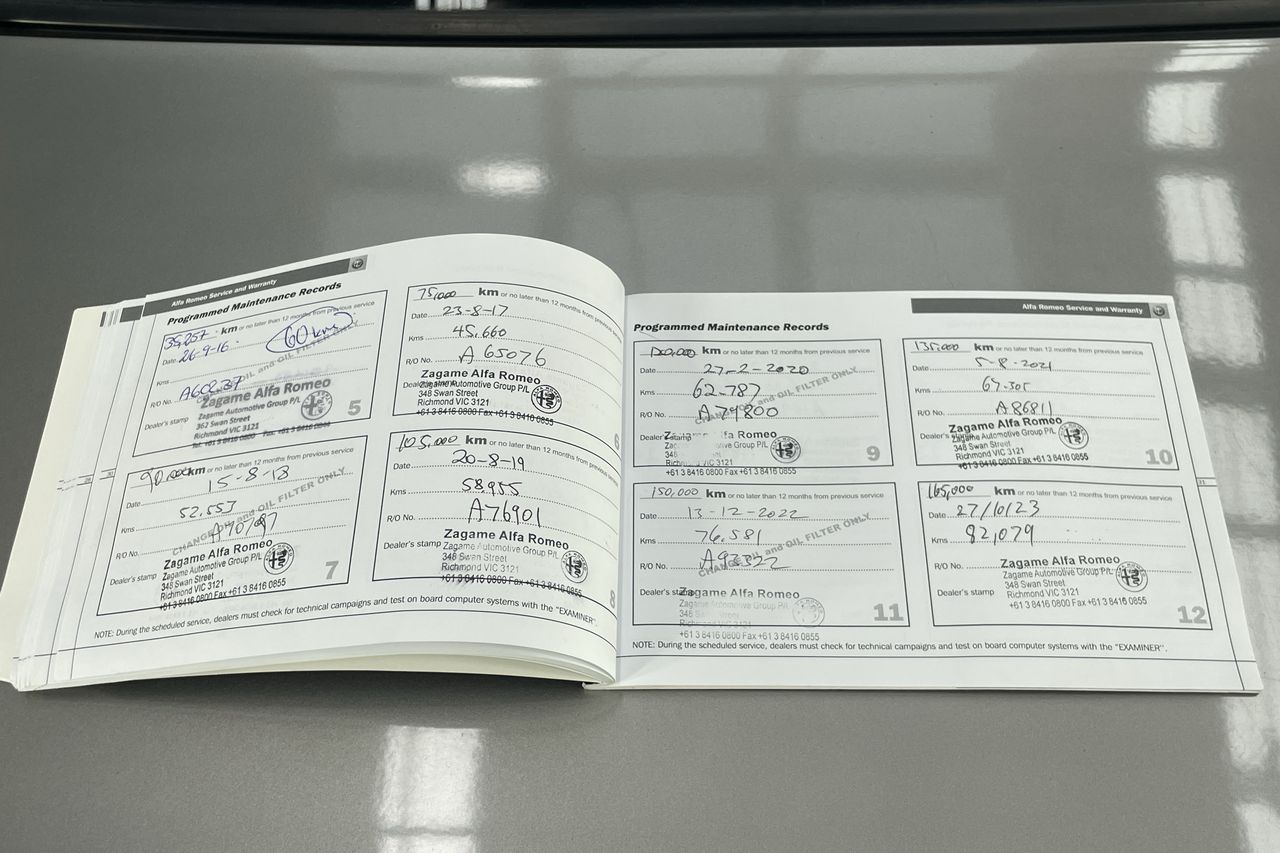 Alfa Romeo Service and Warranty
Programmed Maintenance Records
km or no later than 12 months from previous service
60 kms
Date 26-9-16
Kms
R/O No.
CHANGE OIL and OIL FILTER ONLY
Dealer's stamp
Zagame Alfa Romeo
Zagame Automotive Group P/L
362 Swan Street
Richmond VIC 3121
Tel: +61 3 8416 0800 Fax: +61 3 8416 0844
5
75,000 km or no later than 12 months from previous
Date 23-8-17
Kms 45,660
R/O No. A 65076
Dealer's stamp
Zagame Alfa Romeo
Zagame Automotive Group P/L
348 Swan Street
Richmond VIC 3121
+61 3 8416 0800 Fax +61 3 8416 0855
6
90,000 km or no later than 12 months from previous service
Date 15-8-18
Kms 52,553
R/O No. A70797
CHANGE OIL and OIL FILTER ONLY
Dealer's stamp
Zagame Alfa Romeo
Zagame Automotive Group P/L
348 Swan Street
Richmond VIC 3121
+61 3 8416 0800 Fax +61 3 8416 0855
7
105,000 km or no later than 12 months from previous
Date 20-8-19
Kms 58,955
R/O No. A76901
Dealer's stamp
Zagame Alfa Romeo
Zagame Automotive Group P/L
348 Swan Street
Richmond VIC 3121
+61 3 8416 0800 Fax +61 3 8416 0855
8
NOTE: During the scheduled service, dealers must check for technical campaigns and test on board computer systems with the "EXAMINER".
Alfa Romeo Service and Warranty
Programmed Maintenance Records
120,000 km or no later than 12 months from previous service
Date 27-2-2020
Kms 62-787
R/O No. A79800
CHANGE OIL and OIL FILTER ONLY
Dealer's stamp
Zagame Alfa Romeo
Zagame Automotive Group P/L
348
Richmond VIC 3121
+61 3 8416 0800 Fax +61 3 8416 0855
9
135,000 km or no later than 12 months from previous service
Date 5-8-2021
Kms
R/O No. A86811
Dealer's stamp
Zagame Alfa Romeo
Zagame Automotive Group P/L
348 Swan Street
Richmond VIC 3121
+61 3 8416 0800 Fax +61 3 8416 0855
10
150,000 km or no later than 12 months from previous service
Date 13-12-2022
Kms 76,581
R/O No.
CHANGE OIL and OIL FILTER ONLY
Dealer's stamp
Zagame Alfa Romeo
Zagame Automotive Group P/L
348
Richmond VIC 3121
+61 3 8416 0800 Fax +61 3 8416 0855
11
165,000 km or no later than 12 months from previous service
Date 27/10/23
Kms 82,079
R/O No.
Dealer's stamp
Zagame Alfa Romeo
Zagame Automotive Group P/L
348 Swan Street
Richmond VIC 3121
+61 3 8416 0800 Fax +61 3 8416 0855
12
NOTE: During the scheduled service, dealers must check for technical campaigns and test on board computer systems with the "EXAMINER".
31